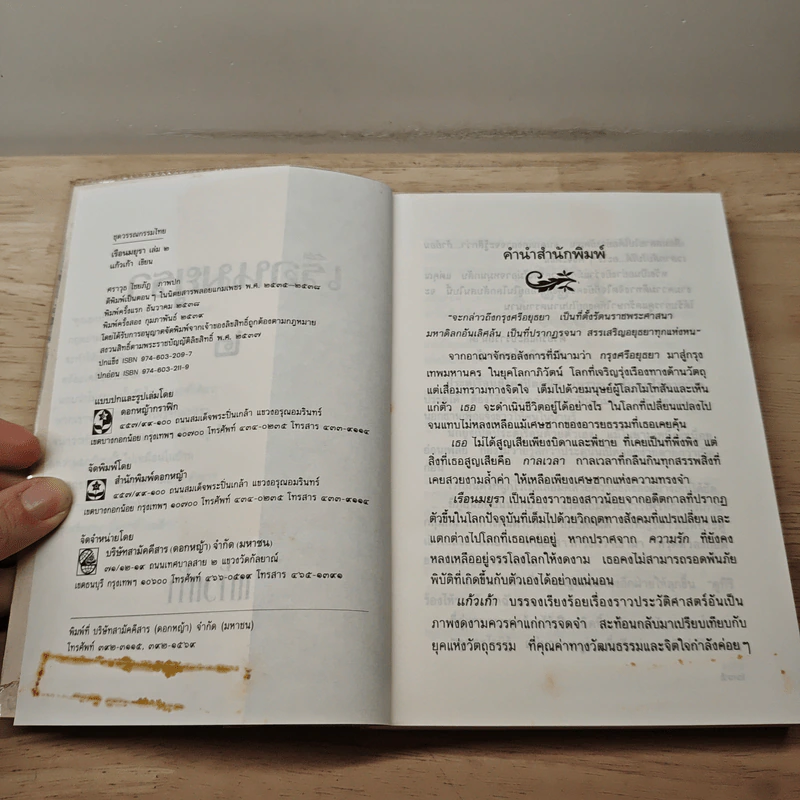 ชุดวรรณกรรมไทย
เรือนมยุรา เล่ม ๒
แก้วเก้า เขียน
ศราวุธ ไชยภัฏ ภาพปก
ตีพิมพ์เป็นตอน ๆ ในนิตยสารพลอยแกมเพชร พ.ศ. ๒๕๓๕-๒๕๓๘
พิมพ์ครั้งแรก ธันวาคม ๒๕๓๘
พิมพ์ครั้งสอง กุมภาพันธ์ ๒๕๓๙
โดยได้รับการอนุญาตจัดพิมพ์จากเจ้าของลิขสิทธิ์ถูกต้องตามกฎหมาย
สงวนสิทธิ์ตามพระราชบัญญัติลิขสิทธิ์ พ.ศ. ๒๕๓๗
ปกแข็ง ISBN 974-603-209-7
ปกอ่อน ISBN 974-603-211-9
แบบปกและรูปเล่มโดย
ดอกหญ้ากราฟิก
๔๕๗/๙๙-๑๐๐ ถนนสมเด็จพระปิ่นเกล้า แขวงอรุณอมรินทร์
เขตบางกอกน้อย กรุงเทพฯ ๑๐๗๐๐ โทรศัพท์ ๔๓๔-๐๒๓๕ โทรสาร ๔๓๓-๙๑๑๔
จัดพิมพ์โดย
สำนักพิมพ์ดอกหญ้า
๔๕๗/๙๙-๑๐๐ ถนนสมเด็จพระปิ่นเกล้า แขวงอรุณอมรินทร์
เขตบางกอกน้อย กรุงเทพฯ ๑๐๗๐๐ โทรศัพท์ ๔๓๔-๐๒๓๕ โทรสาร ๔๓๓-๙๑๑๔
จัดจำหน่ายโดย
บริษัทสามัคคีสาร (ดอกหญ้า) จำกัด (มหาชน)
๓๑/๑๒-๑๙ ถนนเทศบาลสาย ๒ แขวงวัดกัลยาณ์
เขตธนบุรี กรุงเทพฯ ๑๐๖๐๐ โทรศัพท์ ๔๖๖-๐๕๑๙ โทรสาร ๔๖๕-๑๓๙๑
พิมพ์ที่ บริษัทสามัคคีสาร (ดอกหญ้า) จำกัด (มหาชน)
โทรศัพท์ ๓๙๒-๓๑๑๕, ๓๙๒-๑๕๖๙
คำนำสำนักพิมพ์
"จะกล่าวถึงกรุงศรีอยุธยา เป็นที่ตั้งรัตนราชพระศาสนา
มหาดิลกอันเลิศล้น เป็นที่ปรากฏรจนา สรรเสริญอยุธยาทุกแห่งหน"
จากอาณาจักรอลังการที่มีนามว่า กรุงศรีอยุธยา มาสู่กรุง
เทพมหานคร ในยุคโลกาภิวัตน์ โลกที่เจริญรุ่งเรืองทางด้านวัตถุ
แต่เสื่อมทรามทางจิตใจ เต็มไปด้วยมนุษย์ผู้โลภโมโทสันและเห็น
แก่ตัว เธอ จะดำเนินชีวิตอยู่ได้อย่างไร ในโลกที่เปลี่ยนแปลงไป
จนแทบไม่หลงเหลือแม้เศษซากของอารยธรรมที่เธอเคยคุ้น
เธอ ไม่ได้สูญเสียเพียงบิดาและพี่ชาย ที่เคยเป็นที่พึ่งพิง แต่
สิ่งที่เธอสูญเสียคือ กาลเวลา กาลเวลาที่กลืนกินทุกสรรพสิ่งที่
เคยสวยงามล้ำค่า ให้เหลือเพียงเศษซากแห่งความทรงจำ
เรือนมยุรา เป็นเรื่องราวของสาวน้อยจากอดีตกาลที่ปรากฏ
ตัวขึ้นในโลกปัจจุบันที่เต็มไปด้วยวิกฤตทางสังคมที่แปรเปลี่ยน และ
แตกต่างไปโลกที่เธอเคยอยู่ หากปราศจาก ความรัก ที่ยังคง
หลงเหลืออยู่จรรโลงโลกให้งดงาม เธอคงไม่สามารถรอดพ้นภัย
พิบัติที่เกิดขึ้นกับตัวเองได้อย่างแน่นอน
แก้วเก้า บรรจงเรียงร้อยเรื่องราวประวัติศาสตร์อันเป็น
ภาพงดงามควรค่าแก่การจดจำ สะท้อนกลับมาเปรียบเทียบกับ
ยุคแห่งวัตถุธรรม ที่คุณค่าทางวัฒนธรรมและจิตใจกำลังค่อย ๆ